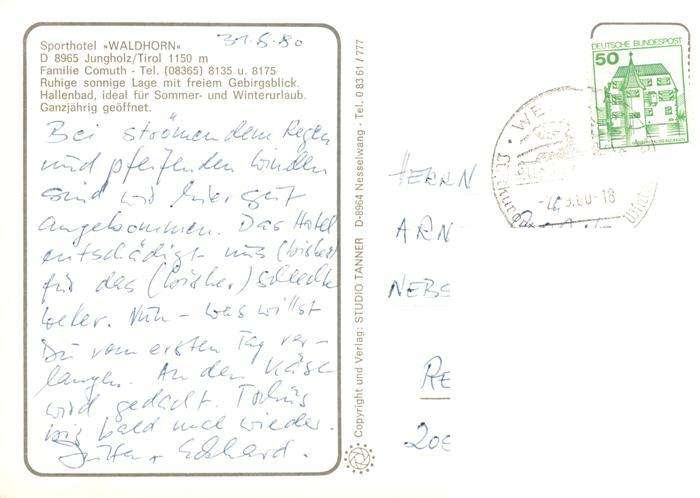 Sporthotel »WALDHORN«
D 8965 Jungholz/Tirol 1150 m
Familie Comuth - Tel. (08365) 8135 u. 8175
Ruhige sonnige Lage mit freiem Gebirgsblick.
Hallenbad, ideal für Sommer- und Winterurlaub.
Ganzjährig geöffnet.
Bei strömendem Regen
und pfeifenden Winden
sind wir hier gut
angekommen. Das Hotel
entschädigt uns (bisher)
für das (bisher) schlechte
Wetter. Nun - was willst
Du vom ersten Tag ver-
langen. An den Käse
wird gedacht. Tschüs
bis bald mal wieder.
Jutta + Eckhard.
Copyright und Verlag: STUDIO TANNER D-8964 Nesselwang - Tel. 0 83 61 / 777
DEUTSCHE BUNDESPOST
50
HERRN
ARN
NEBS
RE